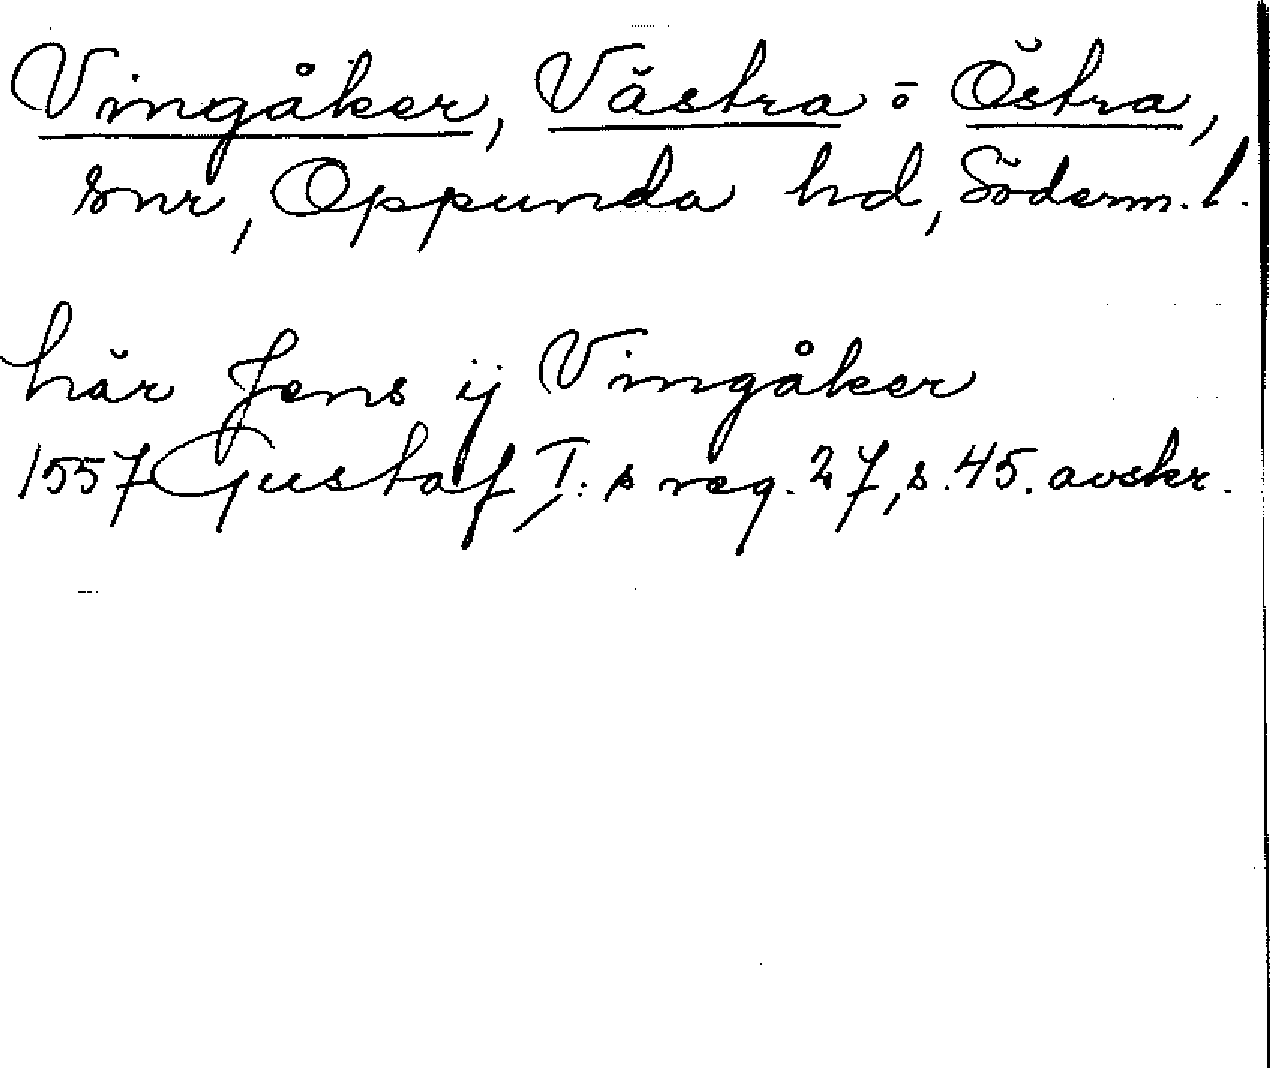 Vingåker, Västra o Östra,
snr, Oppunda hd, Söderm. l.
här Jens ij Vingåker
1557 Gustaf I:s reg. 27, s. 45. avskr.